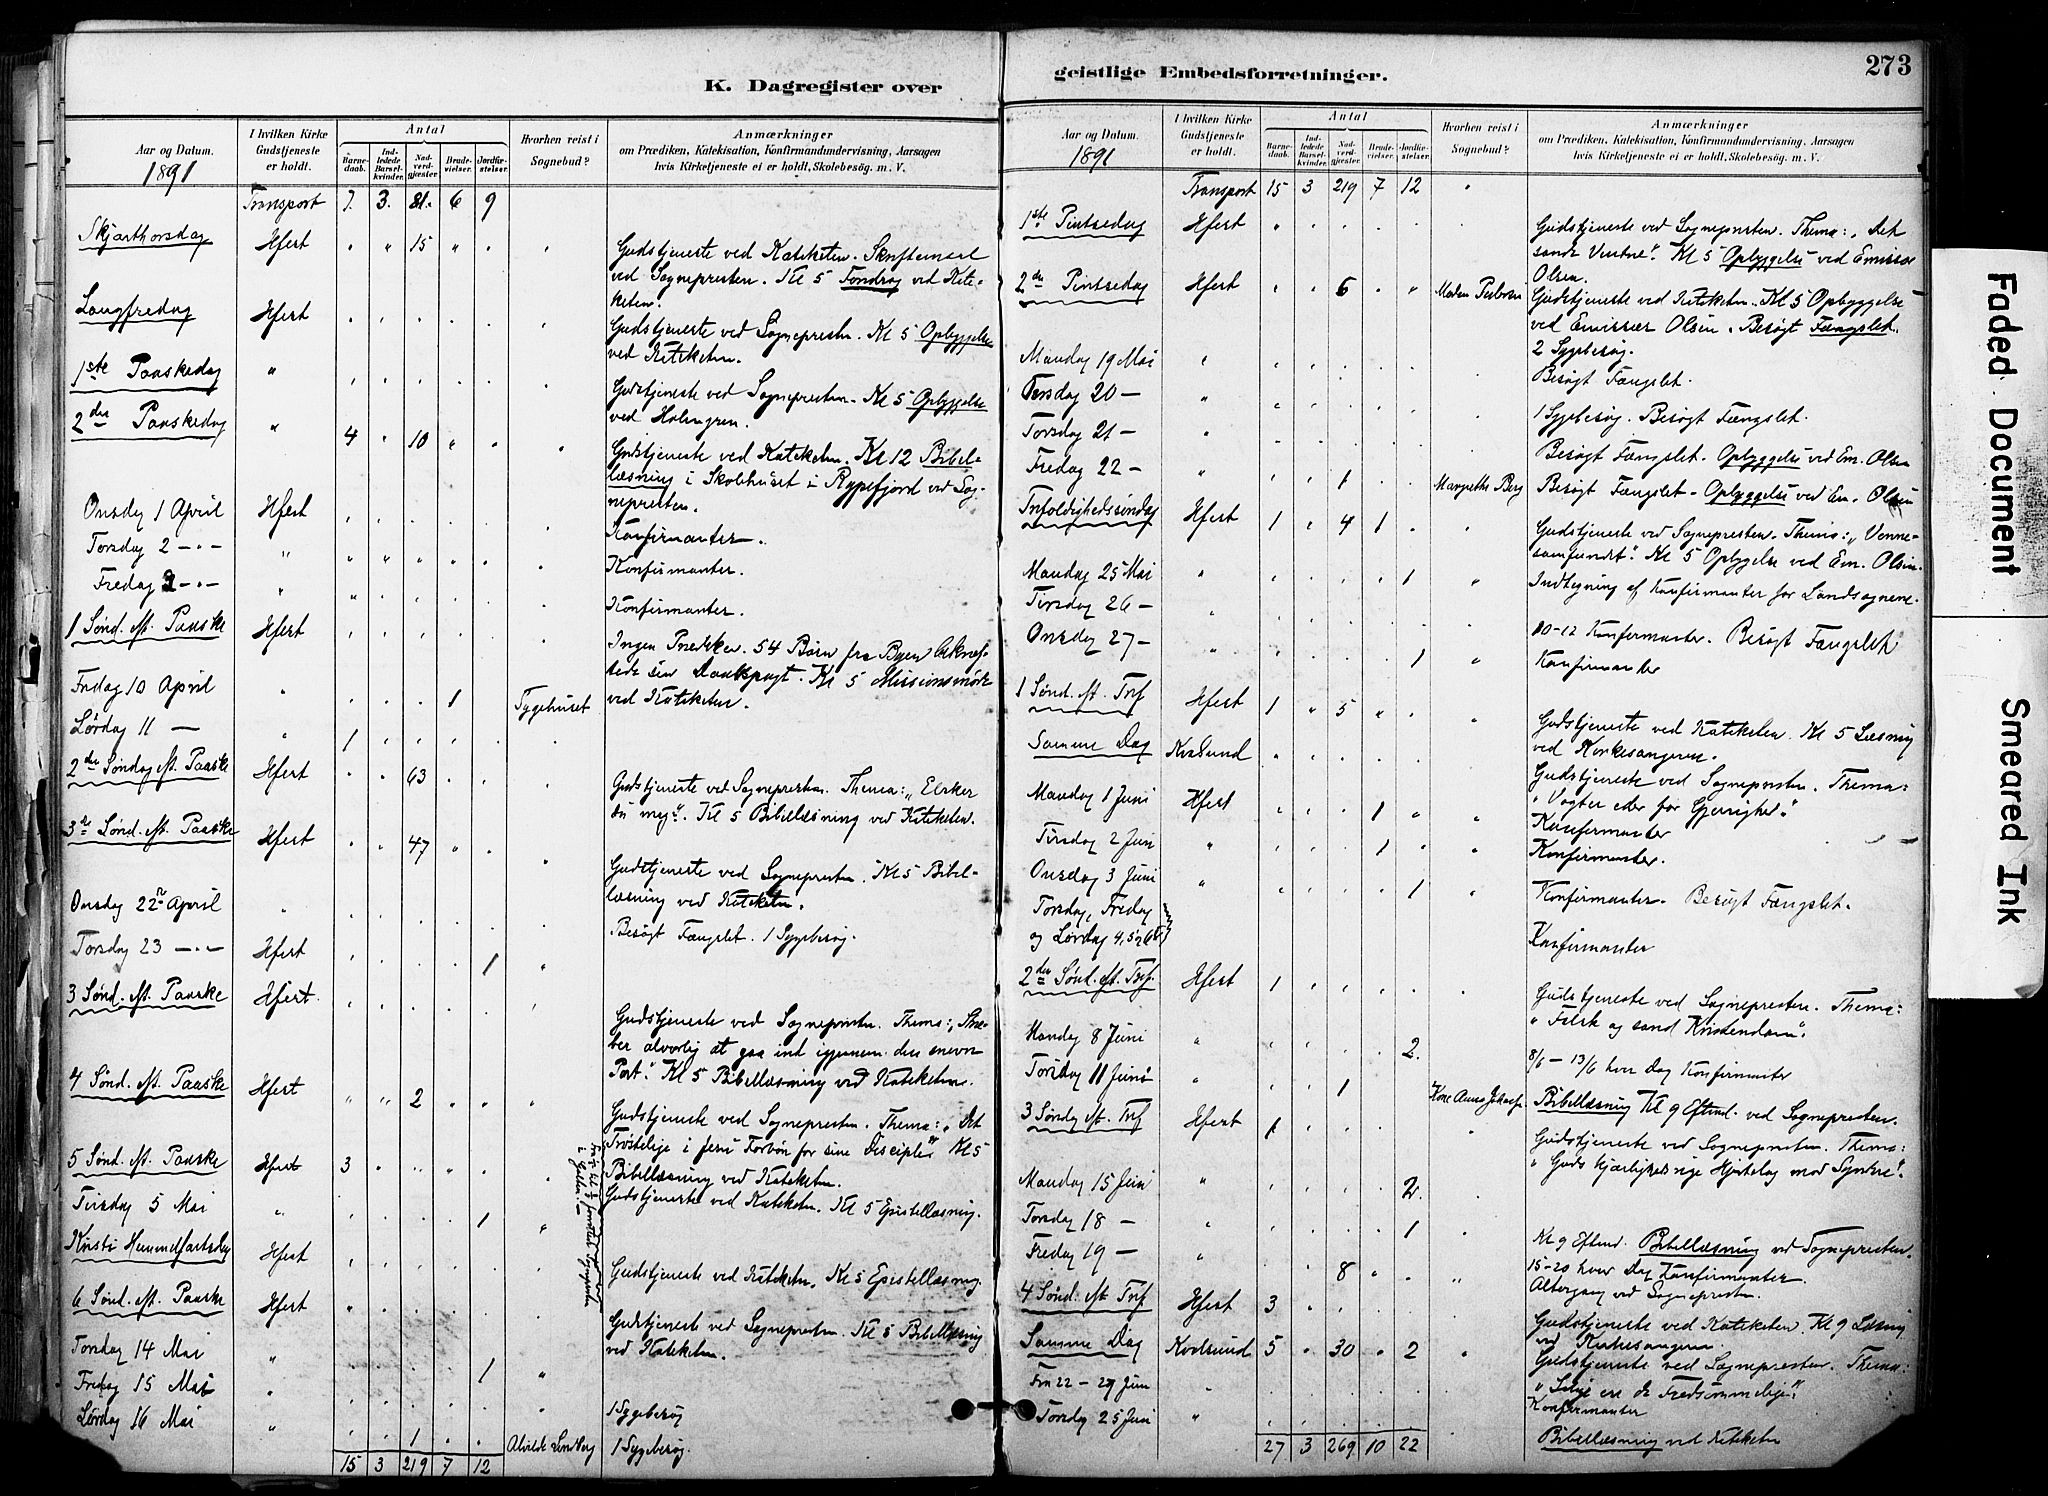 K. Dagregister over
Aar og Datum.
1891
I hvilken Kirke Gudstjeneste er holdt.
Antal
Barnedaab.
Indledede Barselkvinder.
Nadverdgjester
Brudevielser.
Jordfæstelser.
Hvorhen reist i Sognebud?
Anmærkninger
om Prædiken, Katekisation, Konfirmandundervisning, Aarsagen
hvis Kirketjeneste ei er holdt, Skolebesøg. m. V.
Transport 7. 3. 81. 6 9
Skjærthorsdag Hfest " " 15 " " "
Gudstjeneste ved Kateketen. Skriftemaal
ved Sognepresten. Kl 5 Foredrag ved Kate-
keten.
Langfredag Hfest
Gudstjeneste ved Sognepresten. Kl 5 Opbyggelse
ved Kateketen.
1ste Paaskedag "
Gudstjeneste ved Sognepresten. Kl 5 Opbyggelse
ved Holmgren.
2den Paaskedag " 4 " 10 " " "
Gudstjeneste ved Kateketen. Kl 12 Bibel-
læsning i Skolehuset i Rypefjord ved Sog-
nepresten.
Onsdag 1 April Hfest
Konfirmanter.
Torsdag 2 -"- "
Konfirmanter.
Fredag 3 -"- "
Konfirmanter.
1 Sønd. eft. Paaske Hfest
Ingen Prædiken. 54 Børn fra Byen bekræf-
tede sin Daabspagt. Kl 5 Missionsmøde
ved Kateketen.
Fredag 10 April " 1 Sygehuset
Lørdag 11 — " 1
2den Søndag eft. Paaske Hfest " " 63
Gudstjeneste ved Sognepresten. Thema: „Elsker
du mig". Kl 5 Bibellæsning ved Kateketen.
3re Sønd. eft. Paaske Hfest " " 47
Gudstjeneste ved Sognepresten. Kl 5 Bibel-
læsning ved Kateketen.
Onsdag 22 April "
Besøgt Fængslet. 1 Sygebesøg.
Torsdag 23 -"- Hfest 1 "
3 Sønd. eft. Paaske Hfest.
Gudstjeneste ved Sognepresten. Thema: „Stræ-
ber alvorlig at gaa ind igjennem den snevre
Port". Kl 5 Bibellæsning ved Kateketen.
4 Sønd. eft. Paaske Hfest " " 2 " " "
Gudstjeneste ved Sognepresten. Thema: „Det
Trøstelige i Jesu Forbøn for sine Disciple". Kl 5
Bibellæsning ved Kateketen.
5 Sønd. eft. Paaske Hfest 3
Gudstjeneste ved Kateketen. Kl 5 Epistellæsning.
Tirsdag 5 Mai " 1 "
Kristi Himmelfartsdag Hfest
Gudstjeneste ved Kateketen. Kl 5 Epistellæsning.
6 Sønd. eft. Paaske Hfest
Gudstjeneste ved Sognepresten. Kl 5 Bibellæsning
ved Kateketen.
Torsdag 14 Mai " 1 "
Fredag 15 Mai "
1 Sygebesøg
Lørdag 16 Mai " 1 Alvilde Lindberg 1 Sygebesøg.
15 3 219 7 12
geistlige Embedsforretninger.
273
Aar og Datum.
1891
I hvilken Kirke Gudstjeneste er holdt.
Antal
Barnedaab.
Indledede Barselkvinder.
Nadverdgjester
Brudevielser.
Jordfæstelser.
Hvorhen reist i Sognebud?
Anmærkninger
om Prædiken, Katekisation, Konfirmandundervisning, Aarsagen
hvis Kirketjeneste ei er holdt, Skolebesøg. m. V.
Transport 15 3 219 7 12 "
1ste Pintsedag Hfest
Gudstjeneste ved Sognepresten. Thema: „Det
sande Vidne". Kl 5 Opbyggelse ved Emissær
Olsen.
2den Pintsedag Hfest " " 6
Gudstjeneste ved Kateketen. Kl 5 Opbyggelse
ved Emissær Olsen. Besøgt Fængslet.
2 Sygebesøg.
Mandag 19 Mai "
Besøgt Fængslet.
Tirsdag 20 — "
1 Sygebesøg. Besøgt Fængslet.
Torsdag 21 — "
Besøgt Fængslet. Opbyggelse ved Em. Olsen
Fredag 22 — " 1 Margrethe Berg
Besøgt Fængslet. Opbyggelse ved Em. Olsen
Trefoldighedssøndag Hfest 1 " 4 1
Gudstjeneste ved Sognepresten. Thema: „Venne-
samfundet". Kl 5 Opbyggelse ved Em. Olsen.
Mandag 25 Mai " 1 "
Indtegning af Konfirmanter for Landsognene.
Tirsdag 26 — "
10-12 Konfirmanter. Besøgt Fængslet
Onsdag 27 — " 1 "
Konfirmanter
1 Sønd. eft. Tref Hfest 1 " 5 " " "
Gudstjeneste ved Kateketen. Kl 5 Læsning
ved Kirkesangeren.
Samme Dag Kvalsund
Gudstjeneste ved Sognepresten. Thema:
„Vogter eder for Gjerrighed."
Mandag 1 Juni Hfest 1 "
Konfirmanter
Tirsdag 2 Juni " 1 "
Konfirmanter.
Onsdag 3 Juni " 1 "
Konfirmanter. Besøgt Fængslet.
Torsdag, Fredag
og Lørdag 4, 5 & 6/6
Konfirmanter
2den Sønd. eft. Tref. Hfest 1
Gudstjeneste ved Sognepresten. Thema:
„Falsk og sand Kristendom".
Mandag 8 Juni " 2.
8/6 — 13/6 hver Dag Konfirmanter
Torsdag 11 Juni " 1 Kone Anna
Bibellæsning Kl 9 Eftmd. ved Sognepresten.
3 Søndag eft. Tref Hfest 1
Gudstjeneste ved Sognepresten. Thema:
„Guds kjærlighedsrige Hjertelag mod Syndere".
Mandag 15 Juni " 2.
Torsdag 18 — " 1
Kl 9 Eftmd. Bibellæsning ved Sognepresten.
Fredag 19 — " 8 " " "
15-20 hver Dag Konfirmanter.
Altergang ved Sognepresten.
4 Sønd. eft. Tref Hfest 3
Gudstjeneste ved Kateketen. Kl 9 Læsning
ved Kirkesangeren.
Samme Dag Kvalsund 5 " 30 " 2 "
Gudstjeneste ved Sognepresten. Thema:
„Salige ere de Fredsommelige".
Fra 22 - 27 Juni
Konfirmanter
Torsdag 25 Juni "
Bibellæsning ved Kateketen
27 3 269 10 22
Faded Document
Smeared Ink